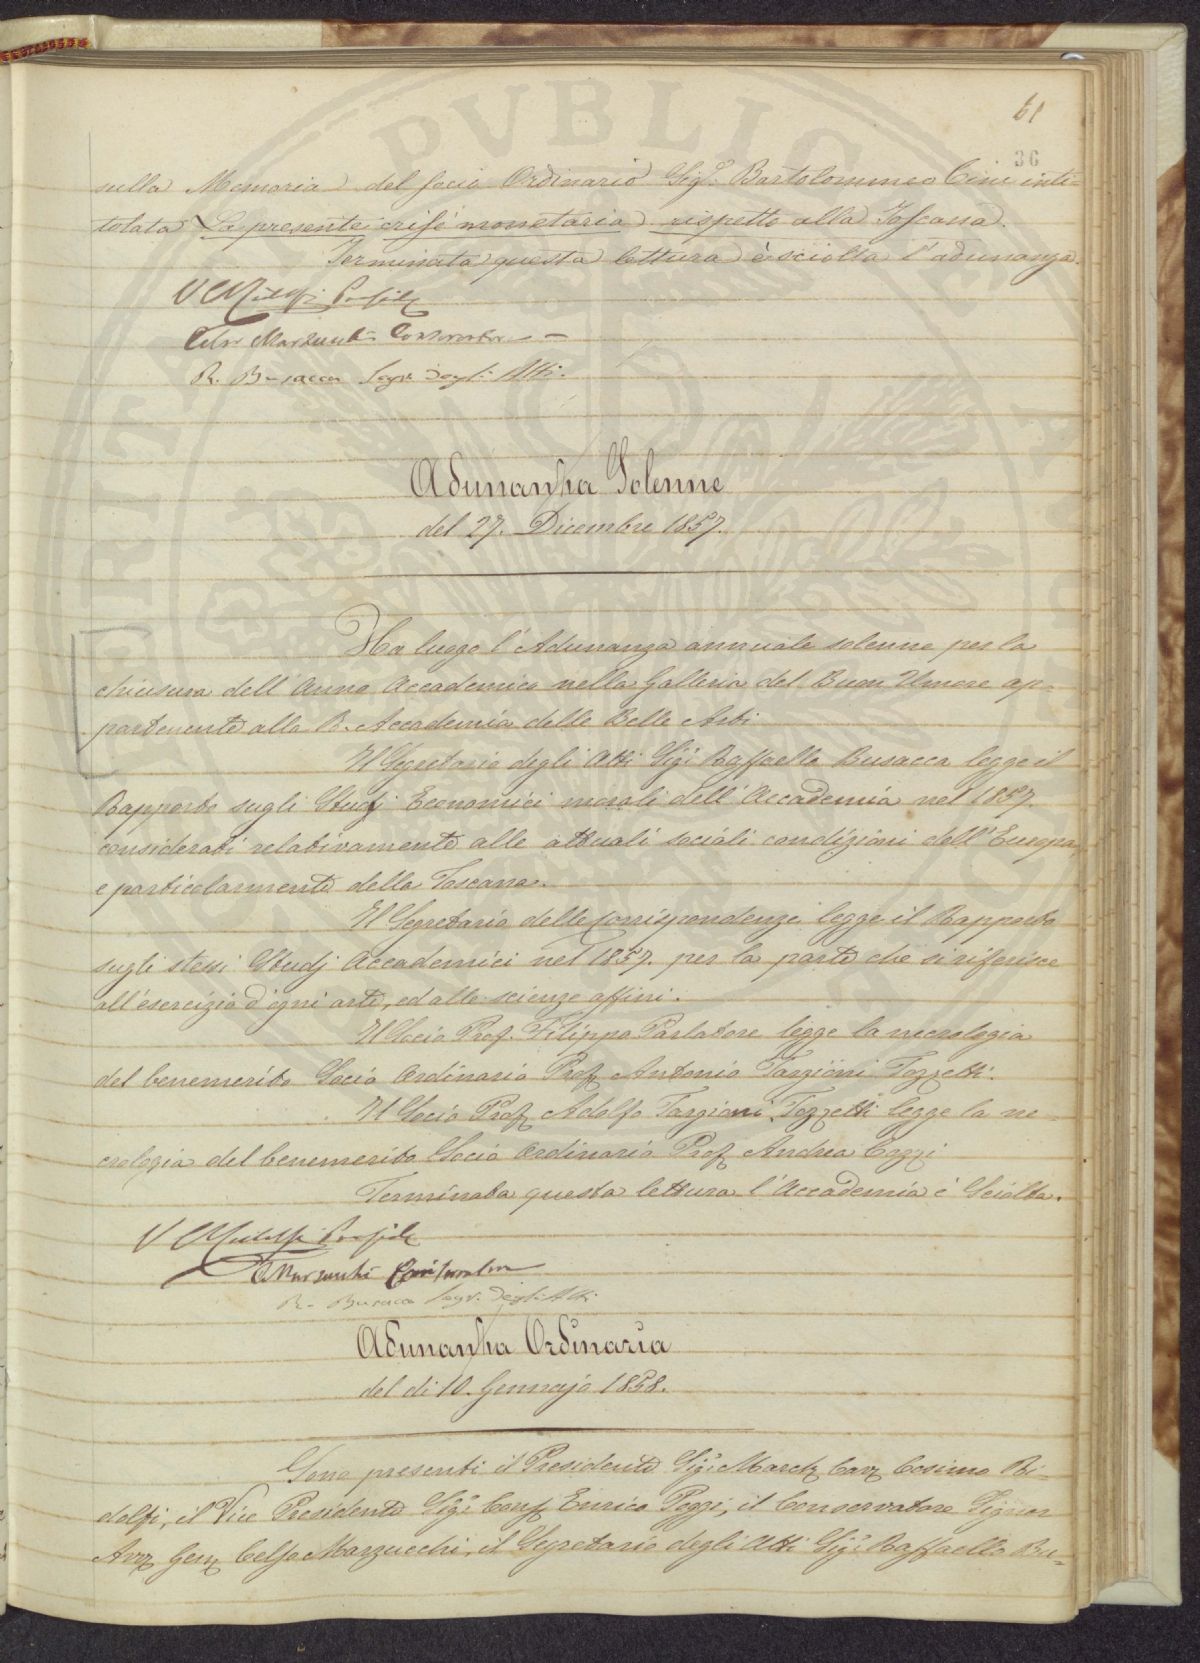 61
36
sulla Memoria del socio Ordinario Sigr. Bartolommeo Cini inti-
tolata La presente crisi monetaria rispetto alla Toscana.
Terminata questa lettura è sciolta l'adunanza.
V C Ridolfi Presid.
Celso Marzucchi Conservatore
R. Busacca Segr. degli Atti.
Adunanza Solenne
del 27. Dicembre 1857.
Ha luogo l'Adunanza annuale solenne per la
chiusura dell'Anno Accademico nella Galleria del Buon Umore ap-
partenente alla R. Accademia delle Belle Arti.
Il Segretario degli Atti Sigr. Raffaello Busacca legge il
Rapporto sugli Studj Economici morali dell'Accademia nel 1857.
considerati relativamente alle attuali sociali condizioni dell'Europa,
e particolarmente della Toscana.
Il Segretario delle Corrispondenze legge il Rapporto
sugli stessi Studj Accademici nel 1857. per la parte che si riferisce
all'esercizio d'ogni arte, ed alle scienze affini.
Il Socio Prof. Filippo Parlatore legge la necrologia
del benemerito Socio Ordinario Prof. Antonio Targioni Tozzetti.
Il Socio Prof. Adolfo Targioni Tozzetti legge la ne-
crologia del benemerito Socio Ordinario Prof. Andrea Cozzi
Terminata questa lettura l'Accademia è Sciolta.
V C Ridolfi Presid.
C Marzucchi Conservatore
R. Busacca Segr. degli Atti
Adunanza Ordinaria
del di 10. Gennajo 1858.
Sono presenti il Presidente Sigr. March. Cav. Cosimo Ri-
dolfi, il Vice Presidente Sigr. Cons. Enrico Poggi, il Conservatore Signor
Avv. Gen. Celso Marzucchi, il Segretario degli Atti Sigr. Raffaello Bu-
PVBLICA